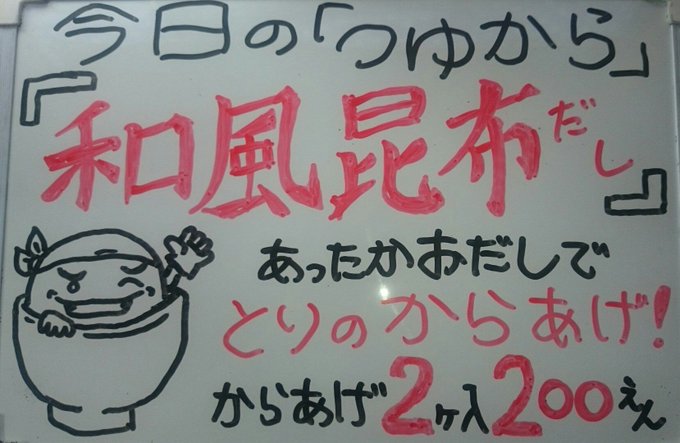 今日の「つゆから」
『和風昆布だし』
あったかおだしで
とりのからあげ!
からあげ2ヶ入200えん